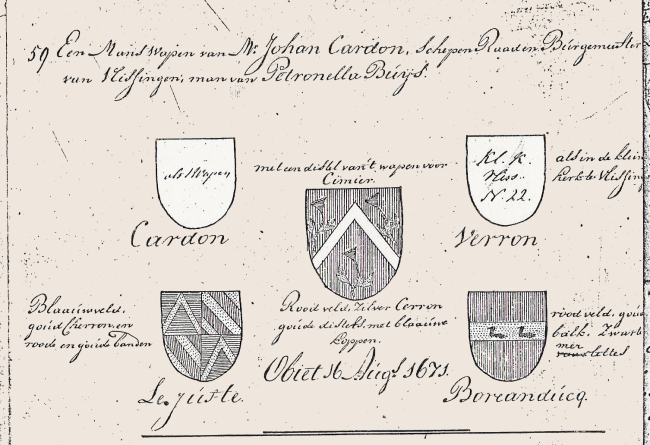 59 Een Mans wapen van Mr. Johan Cardon, Schepen Raad en Burgemeester
van Vlissingen, man van Petronella Buÿs.
als Wapen
Cardon
met een distel van't wapen voor
Cimier.
Kl. K.
Vliss.
N. 22.
als in de klein
kerk te Vlissing
Verron
Blaauw veld,
goud Cherron, en
roode en goude banden
Le Juste.
Rood veld, Zilver Cerron
goude distels, met blaauwe
koppen.
Obiit 16 Augt. 1671.
rood veld, goud
balk. Zwarte
mer
lettes
Boreanducq